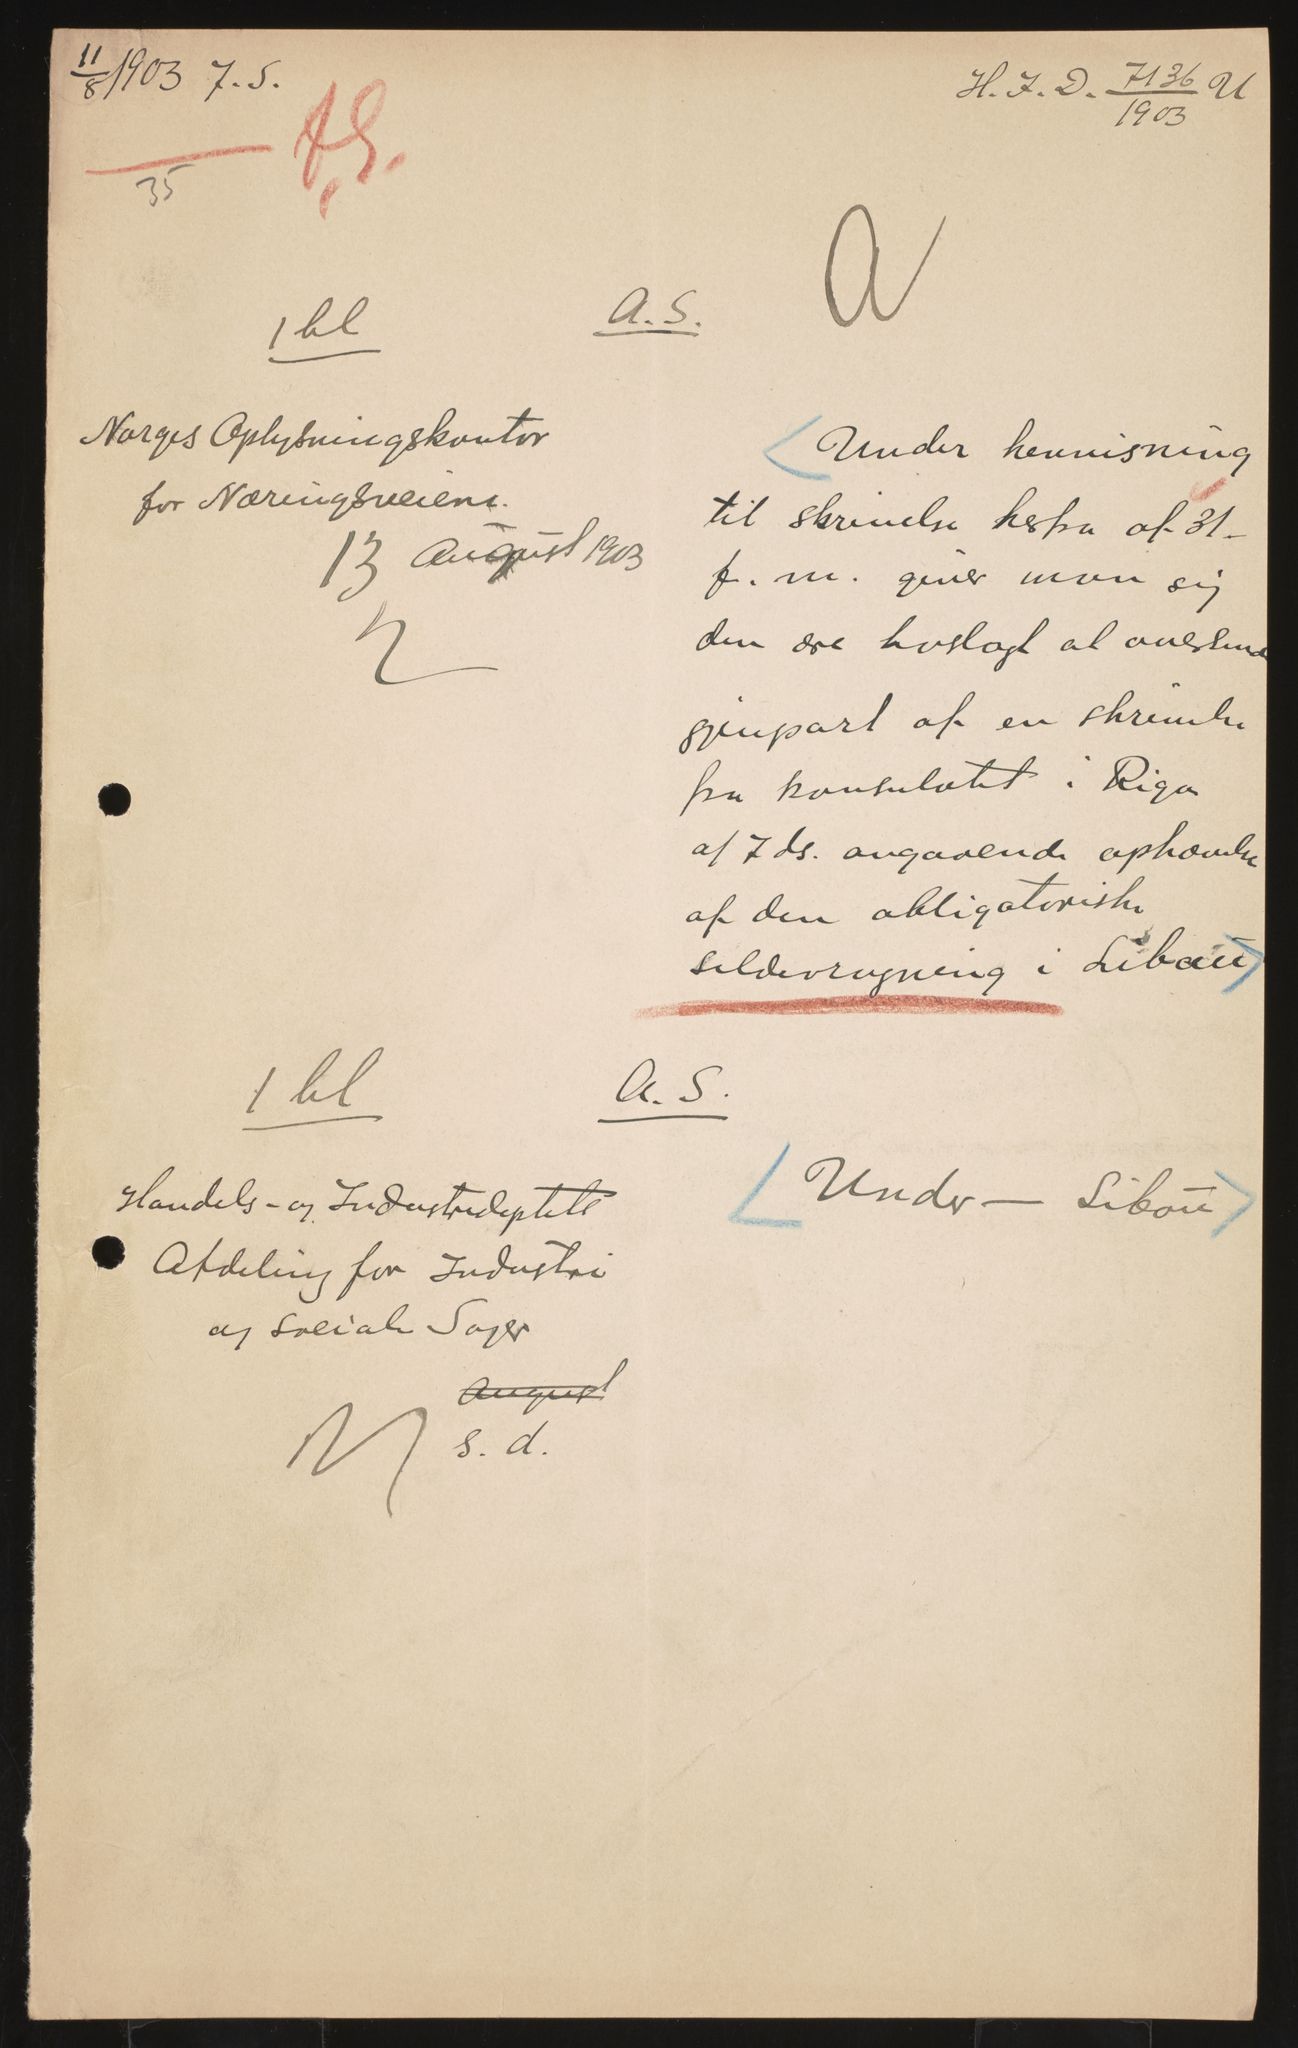 11/8 1903 F. S.
H. I. D. 7136/1903 U
35
1 bl
A. S.
Norges Oplysningskontor
for Næringsveiene.
13 August 1903
Under henvisning
til skrivelse herfra af 31
f. m. giver man sig
den ære hoslagt at oversende
gjenpart af en skrivelse
fra konsulatet i Riga
af 7 ds. angaaende ophævelse
af den obligatoriske
sildevragning i Libau
1 bl
A. S.
Handels- og Industrideptets
Afdeling for Industri
og sociale Sager
August
s. d.
Under — Libau